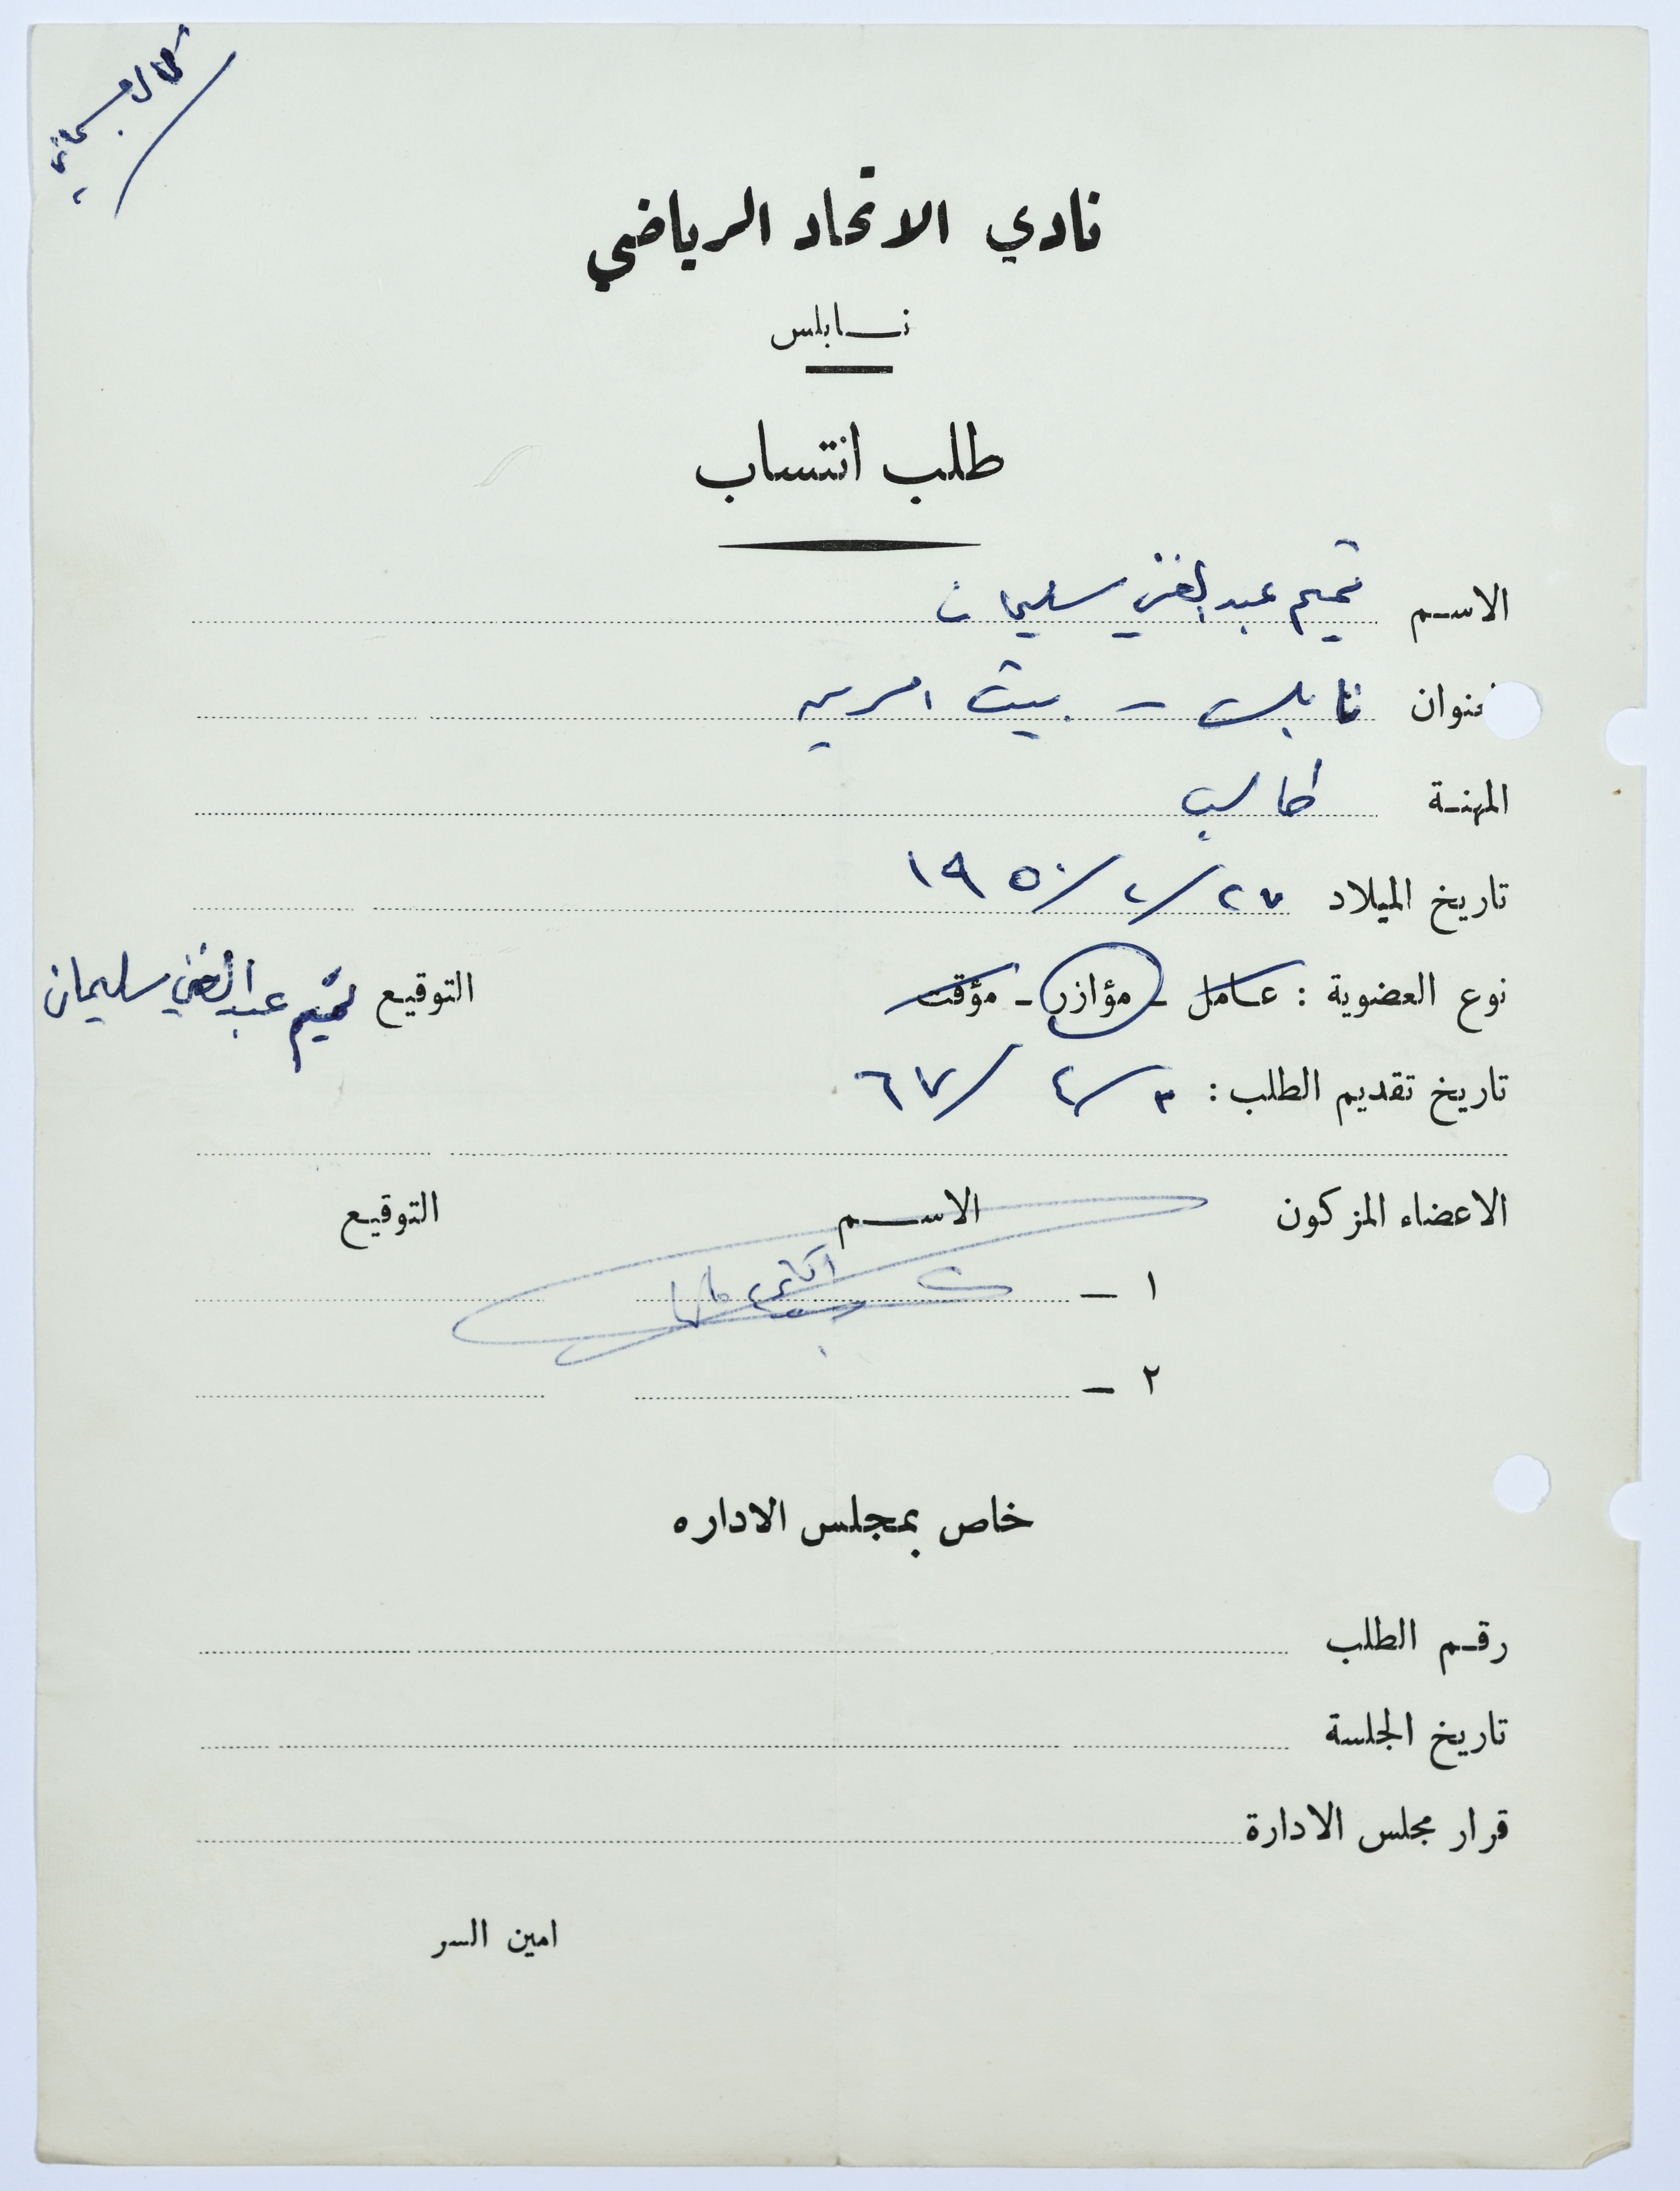 نادي الاتحاد الرياضي
نابلس
طلب انتساب
الاسم تميم عبد الغني سليمان
عنوان نابلس - بيت امرين
المهنة طالب
تاريخ الميلاد ٢٧/٢/١٩٥٠
نوع العضوية : عامل - مؤازر - مؤقت التوقيع تميم عبد الغني سليمان
تاريخ تقديم الطلب : ٣/٤/٦٧
الاعضاء المزكون الاسم التوقيع
١ -
٢ -
خاص بمجلس الاداره
رقم الطلب
تاريخ الجلسة
قرار مجلس الادارة
امين السر